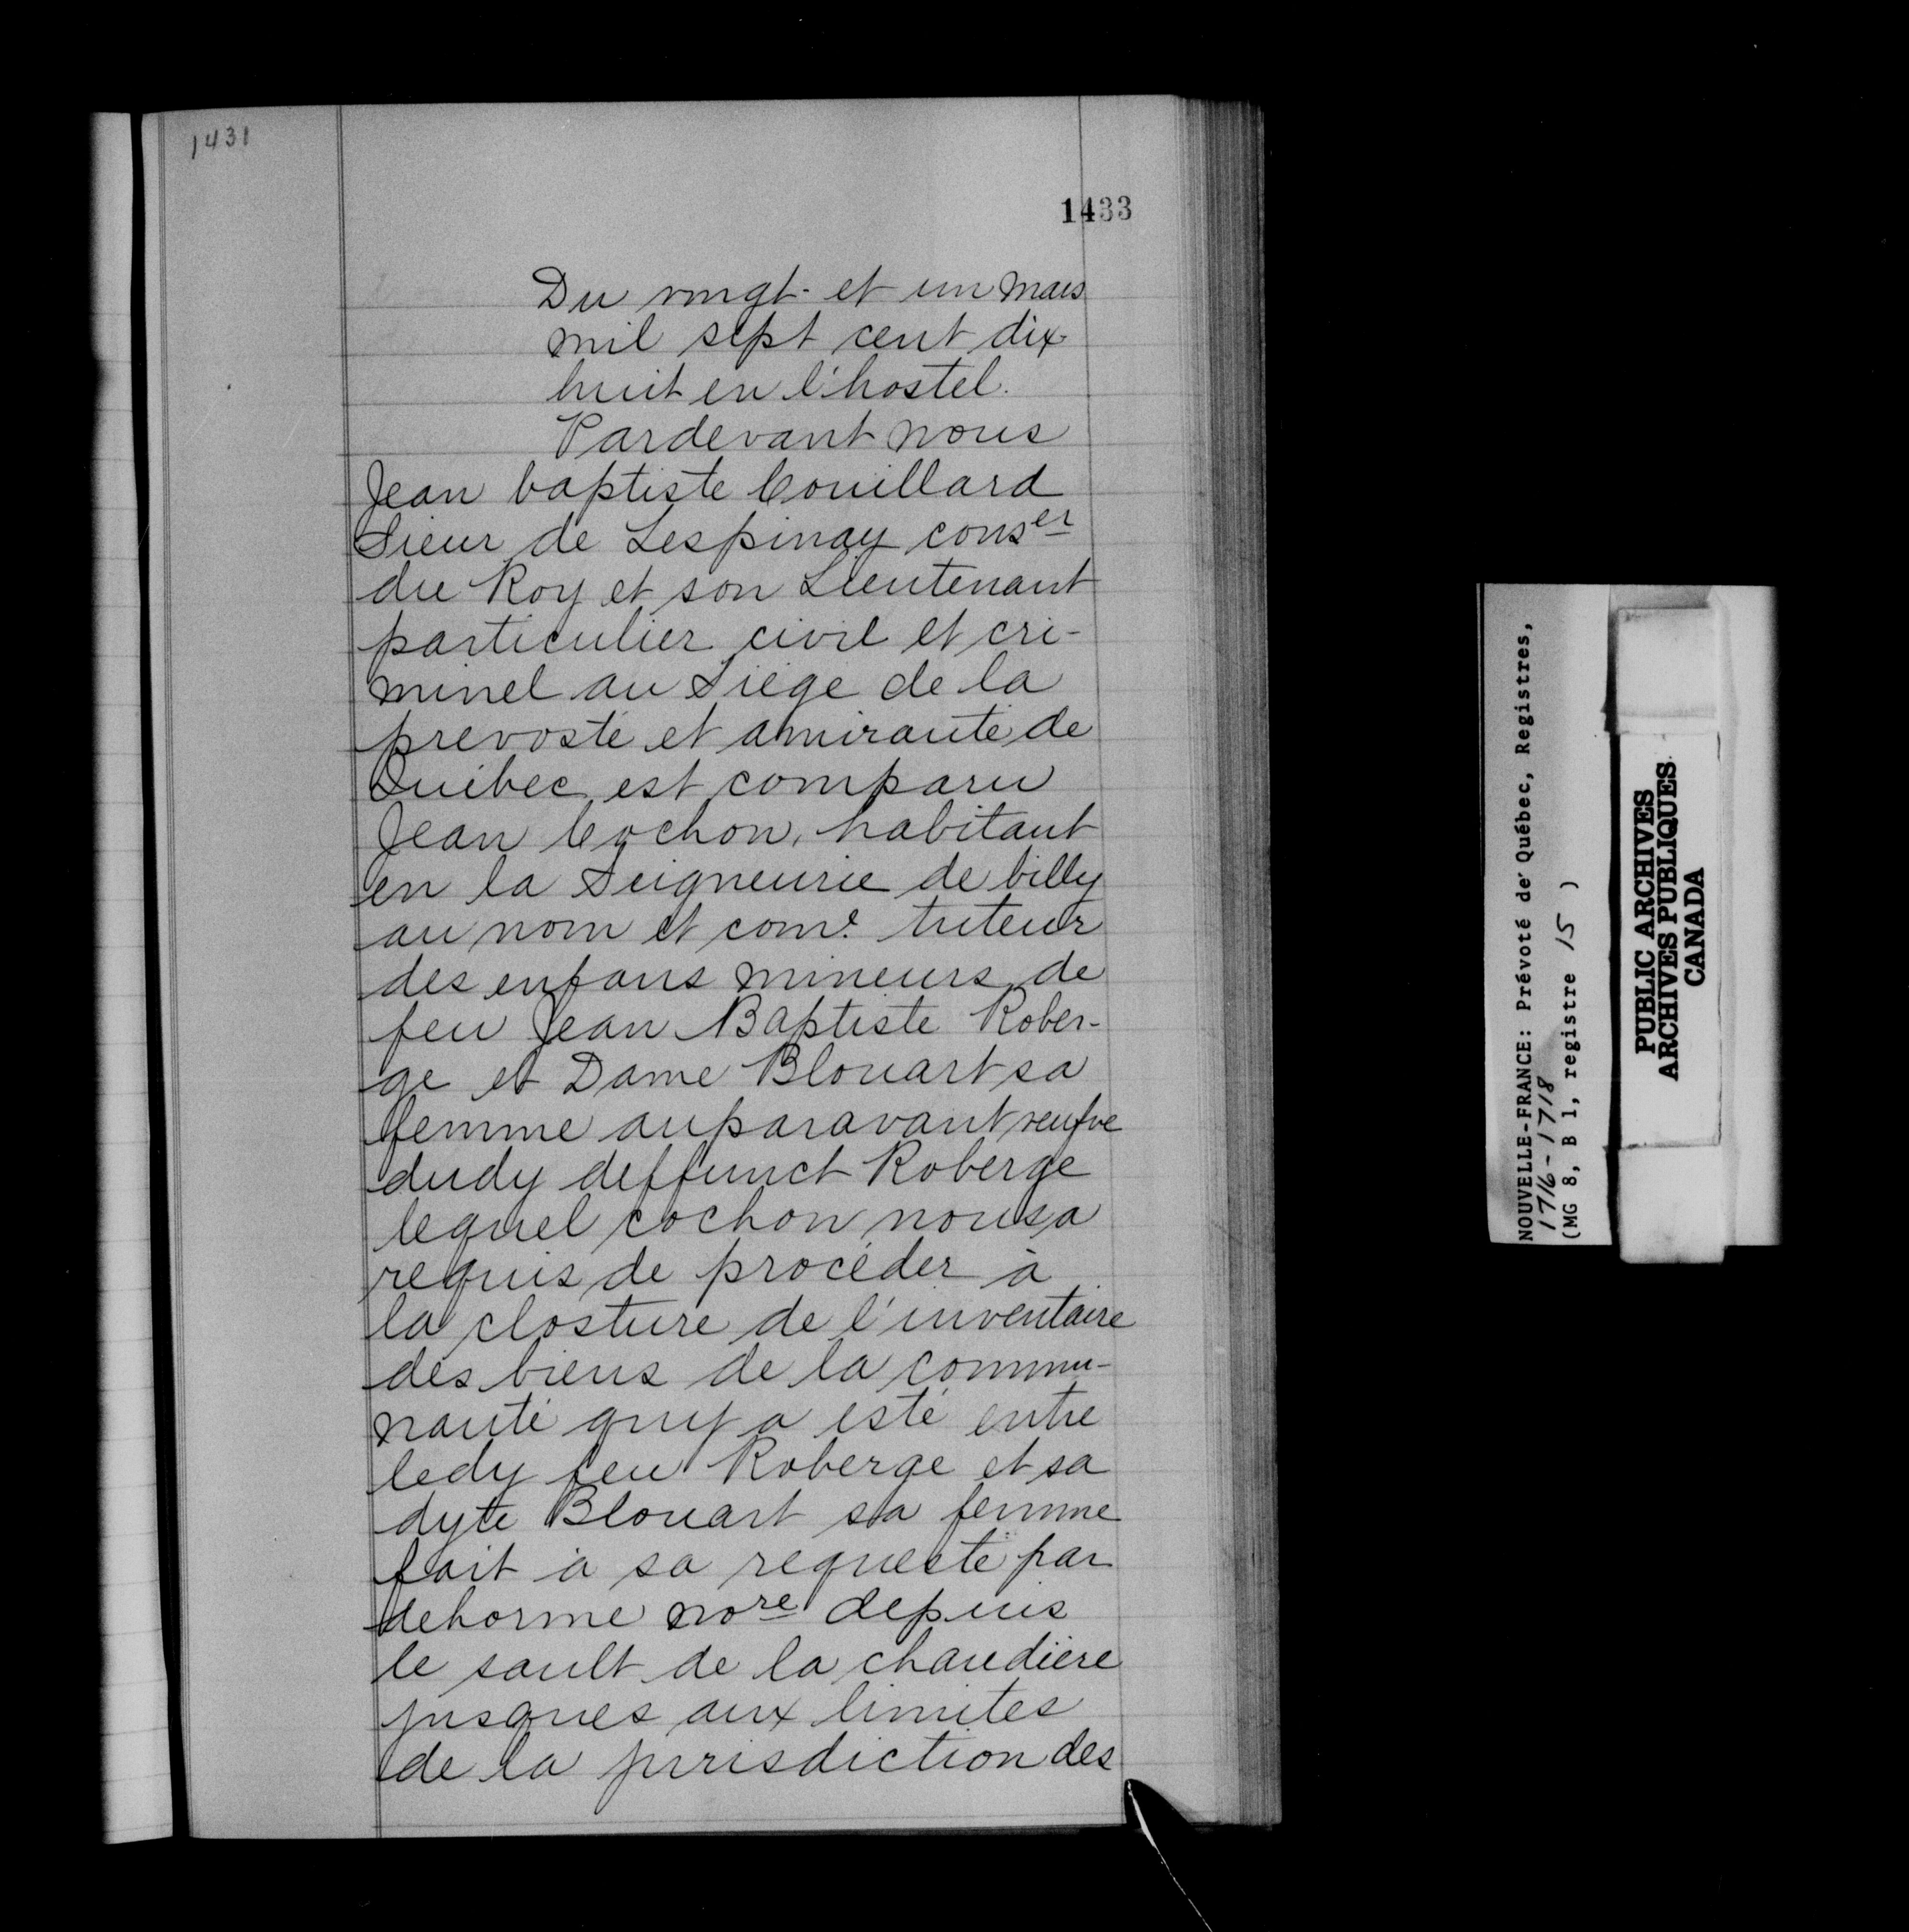 1431
1433
Du vingt et un mars
mil sept cent dix
huit en l'hostel.
Pardevant nous
Jean baptiste Couillard
Sieur de Lespinay conser
du Roy et son Lieutenant
particulier civil et cri-
minel au Siége de la
prevosté et amirauté de
Québec est comparu
Jean Cochon, habitant
en la Seigneurie de billy
au nom et come tuteur
des enfans mineurs de
feu Jean Baptiste Rober-
ge et Dame Blouart sa
femme auparavant veufve
dudy deffunct Roberge
lequel cochon nous a
requis de procéder à
la closture de l'inventaire
des biens de la commu-
nauté quy a esté entre
ledy feu Roberge et sa
dyte Blouart sa femme
fait à sa requeste par
dehorme nore depuis
le sault de la chaudière
jusques aux limites
de la jurisdiction des
NOUVELLE-FRANCE: Prévoté de Québec, Registres,
1716-1718
(MG 8, B 1, registre 15 )
PUBLIC ARCHIVES
ARCHIVES PUBLIQUES
CANADA